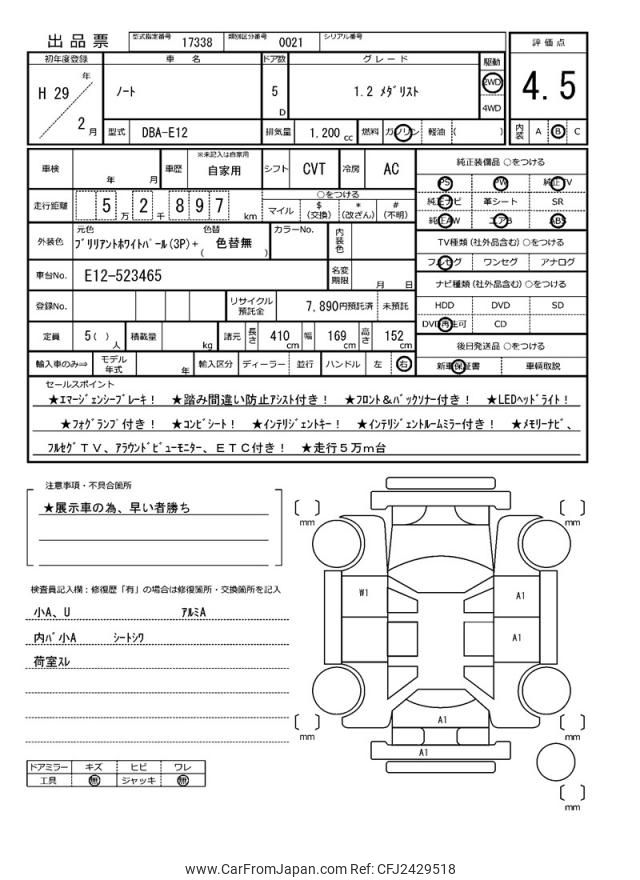 出品票 型式指定番号 17338 類別区分番号 0021 シリアル番号
評価点
4.5
内装 A B C
初年度登録 車名 ドア数 グレード 駆動
H 29 年 2 月
ノート 5 D 1.2 メダリスト 2WD 4WD
型式 DBA-E12 排気量 1,200 cc 燃料 ガソリン 軽油 ( )
車検 年 月 車歴 ※未記入は自家用 自家用 シフト CVT 冷房 AC
走行距離 5 万 2 千 8 9 7 km
○をつける
マイル $ (交換) * (改ざん) # (不明)
外装色 元色 ブリリアントホワイトパール(3P)+ 色替 ( 色替無 ) カラーNo. 内装色
車台No. E12-523465 名変期限 月 日
登録No. リサイクル預託金 7,890円預託済 未預託
定員 5( ) 人 積載量 kg 諸元 長さ 410 cm 幅 169 cm 高さ 152 cm
輸入車のみ⇒ モデル年式 年 輸入区分 ディーラー 並行 ハンドル 左 右
純正装備品 ○をつける
PS PW 純正TV
純正ナビ 革シート SR
純正AW エアB ABS
TV種類 (社外品含む) ○をつける
フルセグ ワンセグ アナログ
ナビ種類 (社外品含む) ○をつける
HDD DVD SD
DVD再生可 CD
後日発送品 ○をつける
新車保証書 車輌取説
セールスポイント
★エマージェンシーブレーキ! ★踏み間違い防止アシスト付き! ★フロント&バックソナー付き! ★LEDヘッドライト!
★フォグランプ付き! ★コンビシート! ★インテリジェントキー! ★インテリジェントルームミラー付き! ★メモリーナビ、
フルセグTV、アラウンドビューモニター、ETC付き! ★走行5万m台
注意事項・不具合箇所
★展示車の為、早い者勝ち
検査員記入欄:修復歴「有」の場合は修復箇所・交換箇所を記入
小A、U アルミA
内バ小A シートシワ
荷室スレ
ドアミラー キズ ヒビ ワレ
工具 無 ジャッキ 無
mm
mm
W1
A1
A1
A1
mm
mm
A1
mm
www.CarFromJapan.com Ref: CFJ2429518